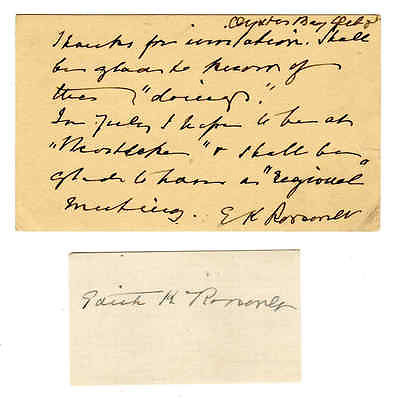 Oyster Bay Feb 8
Thanks for invitation. Shall
be glad to know of
the "doings".
In July I hope to be at
" " & shall be
glad to have a "regional"
meeting. E K Roosevelt
Edith K Roosevelt